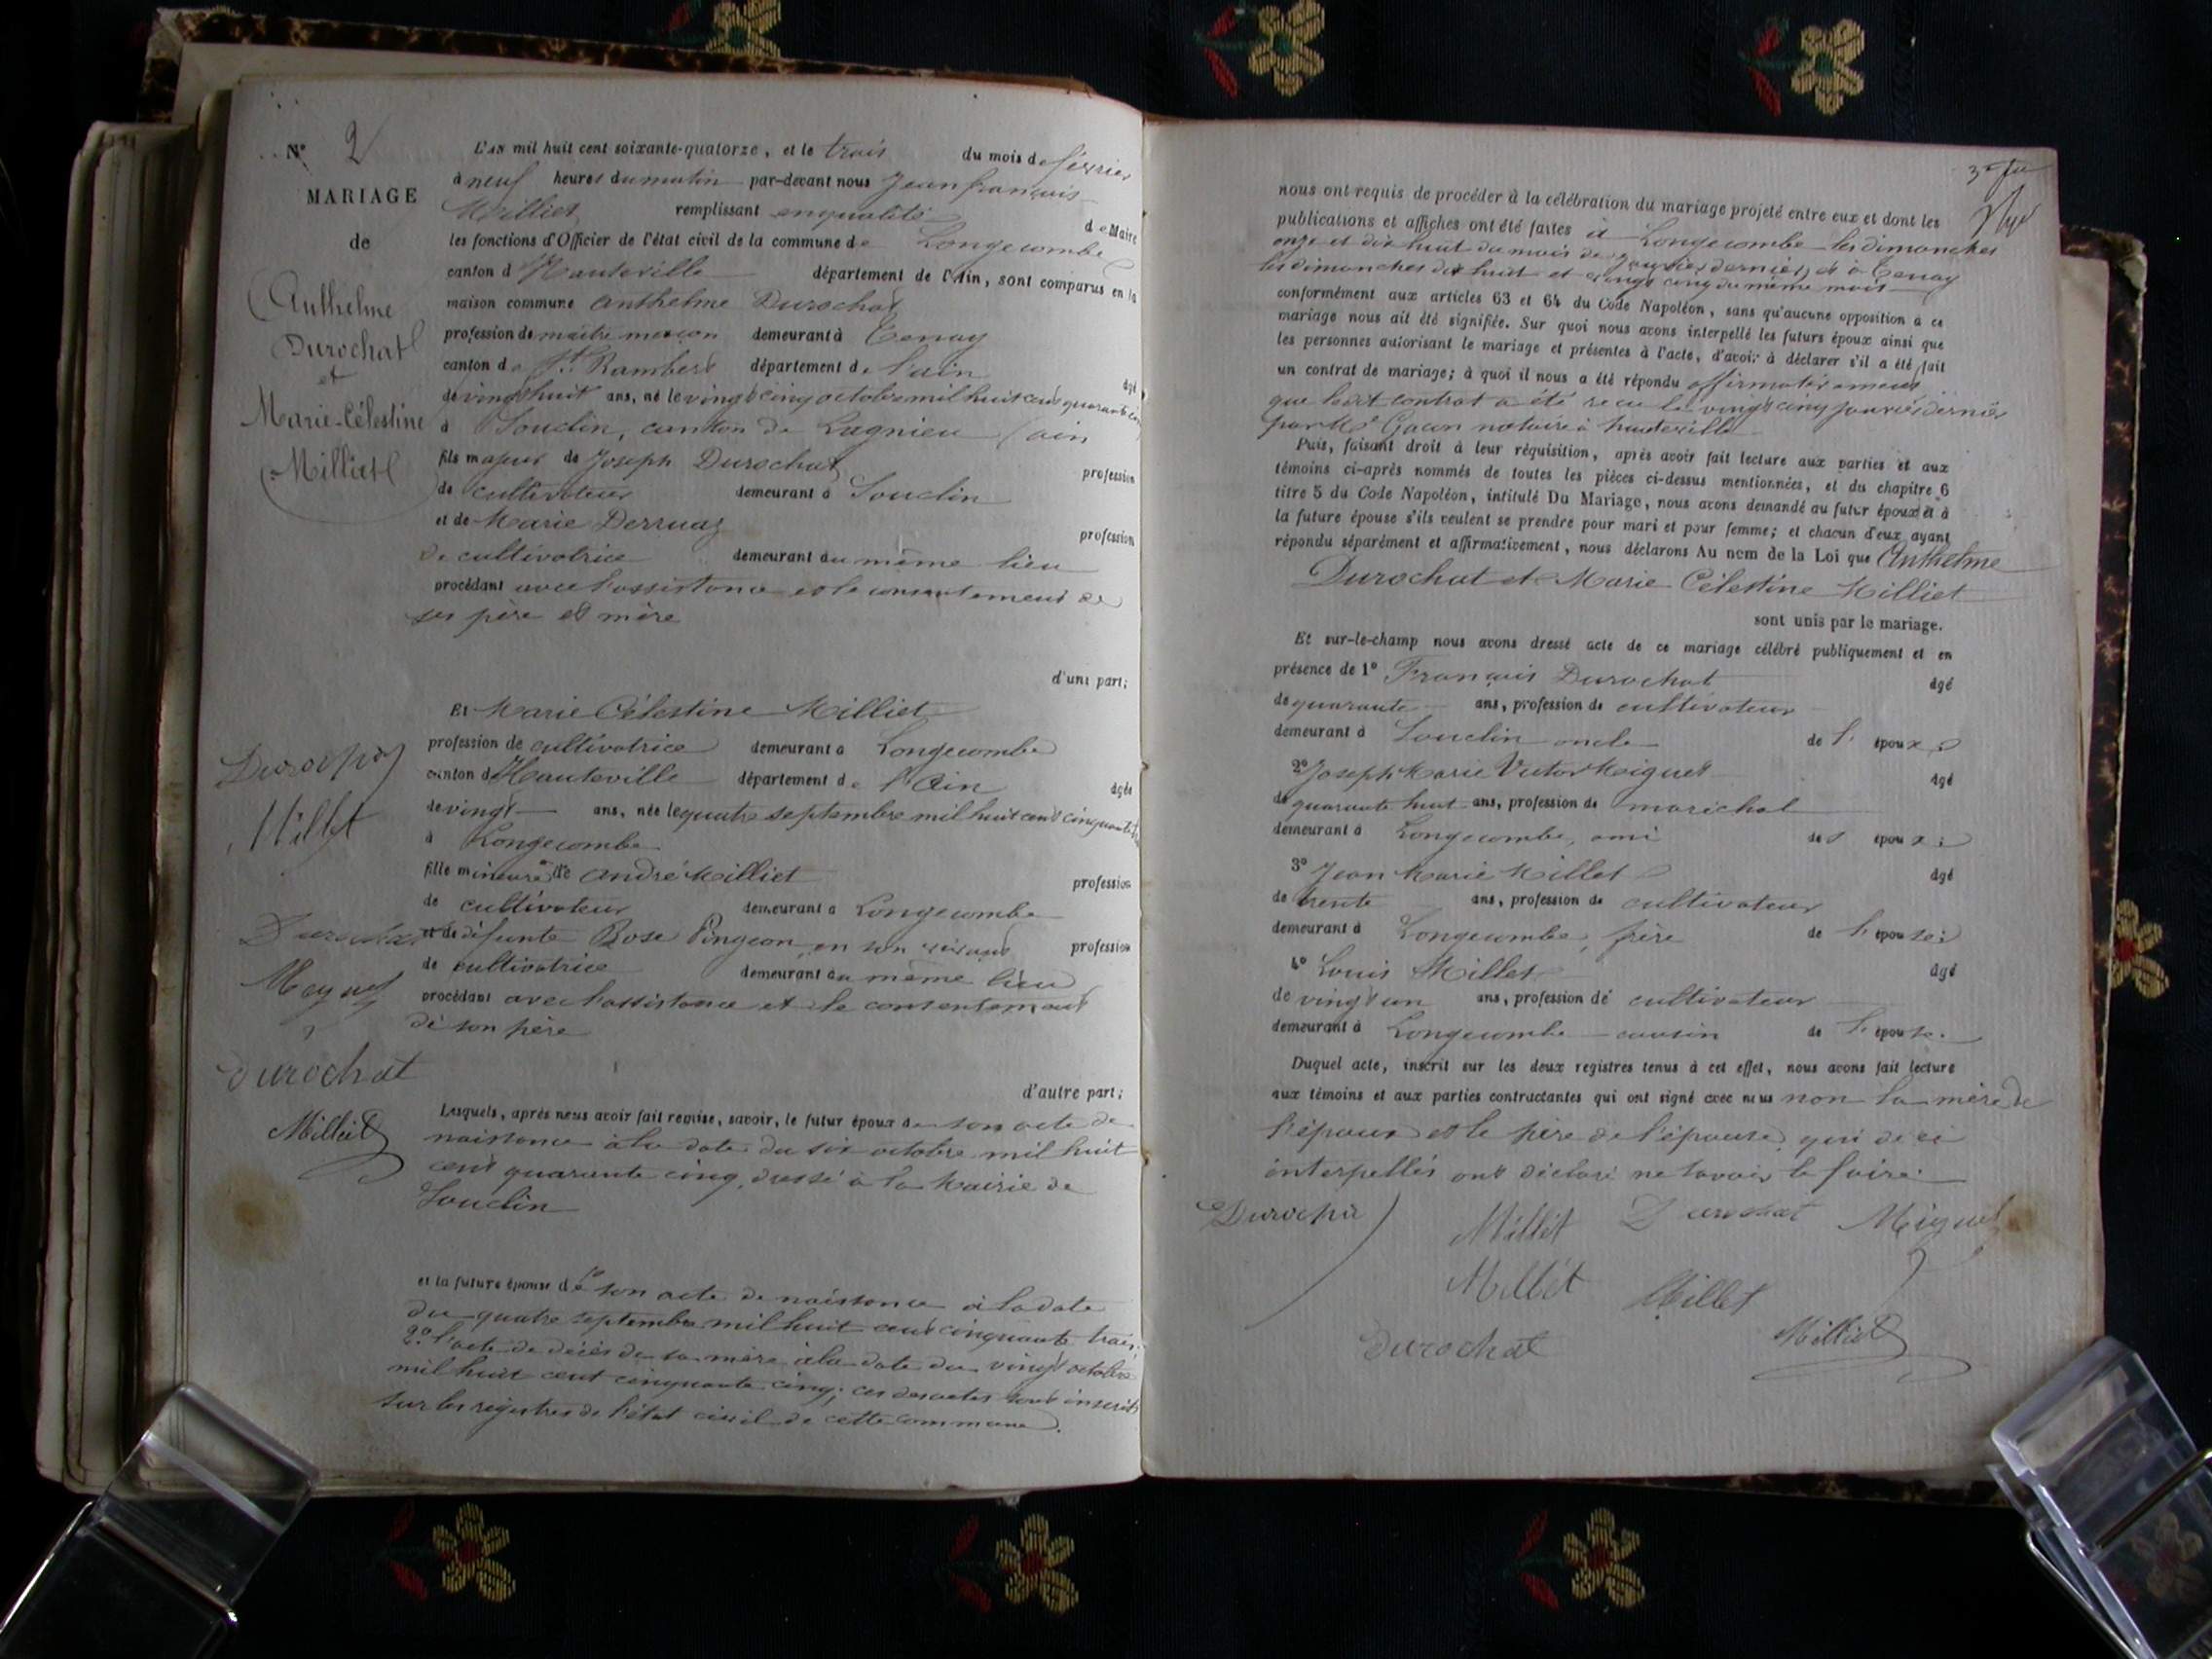 N° 2
MARIAGE
de
Anthelme
Durochat
et
Marie-Célestine
Milliet
L'AN mil huit cent soixante-quatorze, et le trois du mois de février
à neuf heures du matin par-devant nous Jean françois
Milliet remplissant en qualité de Maire
les fonctions d'Officier de l'état civil de la commune de Longecombe
canton d'Hauteville département de l'Ain, sont comparus en la
maison commune Anthelme Durochat
profession de maître maçon demeurant à Tenay
canton de St. Rambert département de l'ain âgé
de vingt huit ans, né le vingt cinq octobre mil huit cent quarante cinq
à Souclin, canton de Lagnieu (ain
fils majeur de Joseph Durochat profession
de cultivateur demeurant à Souclin
et de Marie Derruaz profession
de cultivatrice demeurant au même lieu
procédant avec l'assistance et le consentement de
ses père et mère
d'une part;
Et Marie Célestine Milliet
profession de cultivatrice demeurant à Longecombe
canton d'Hauteville département de l'Ain âgée
de vingt ans, née le quatre septembre mil huit cent cinquante
à Longecombe
fille mineure de André Milliet profession
de cultivateur demeurant à Longecombe
et de défunte Rose Pingeon en son vivant profession
de cultivatrice demeurant au même lieu
procédant avec l'assistance et le consentement
de son père
d'autre part;
Lesquels, après nous avoir fait remise, savoir, le futur époux de son acte de
naissance à la date du six octobre mil huit
cent quarante cinq, dressé à la Mairie de
Souclin
et la future épouse de 1° son acte de naissance à la date
du quatre septembre mil huit cent cinquante trois;
2° l'acte de décès de sa mère à la date du vingt octobre
mil huit cent cinquante cinq; ces des actes sont inscrits
sur les registres de l'état civil de cette commune.
Durochat
Millet
Durochat
Miguet
Durochat
Milliet
nous ont requis de procéder à la célébration du mariage projeté entre eux et dont les
publications et affiches ont été faites à Longecombe les dimanches
onze et dix huit du mois de janvier dernier, et à Tenay
les dimanches dix huit et vingt cinq du même mois
conformément aux articles 63 et 64 du Code Napoléon, sans qu'aucune opposition à ce
mariage nous ait été signifiée. Sur quoi nous avons interpellé les futurs époux ainsi que
les personnes autorisant le mariage et présentes à l'acte, d'avoir à déclarer s'il a été fait
un contrat de mariage; à quoi il nous a été répondu affirmativement
que ledit contrat a été reçu le vingt cinq janvier dernier
par Me Gacon notaire à hauteville
Puis, faisant droit à leur réquisition, après avoir fait lecture aux parties et aux
témoins ci-après nommés de toutes les pièces ci-dessus mentionnées, et du chapitre 6
titre 5 du Code Napoléon, intitulé Du Mariage, nous avons demandé au futur époux et à
la future épouse s'ils veulent se prendre pour mari et pour femme; et chacun d'eux ayant
répondu séparément et affirmativement, nous déclarons Au nom de la Loi que Anthelme
Durochat et Marie Célestine Milliet
sont unis par le mariage.
Et sur-le-champ nous avons dressé acte de ce mariage célébré publiquement et en
présence de 1° François Durochat âgé
de quarante ans, profession de cultivateur
demeurant à Souclin oncle de l'époux;
2° Joseph Marie Victor Miguet âgé
de quarante huit ans, profession de maréchal
demeurant à Longecombe, ami des époux;
3° Jean Marie Millet âgé
de trente ans, profession de cultivateur
demeurant à Longecombe, frère de l'épouse;
4° Louis Millet âgé
de vingt un ans, profession de cultivateur
demeurant à Longecombe cousin de l'épouse.
Duquel acte, inscrit sur les deux registres tenus à cet effet, nous avons fait lecture
aux témoins et aux parties contractantes qui ont signé avec nous non la mère de
l'époux et le père de l'épouse qui de ce
interpellés ont déclaré ne savoir le faire.
Durochat Millet Durochat Miguet
Millet Millet
Durochat Milliet